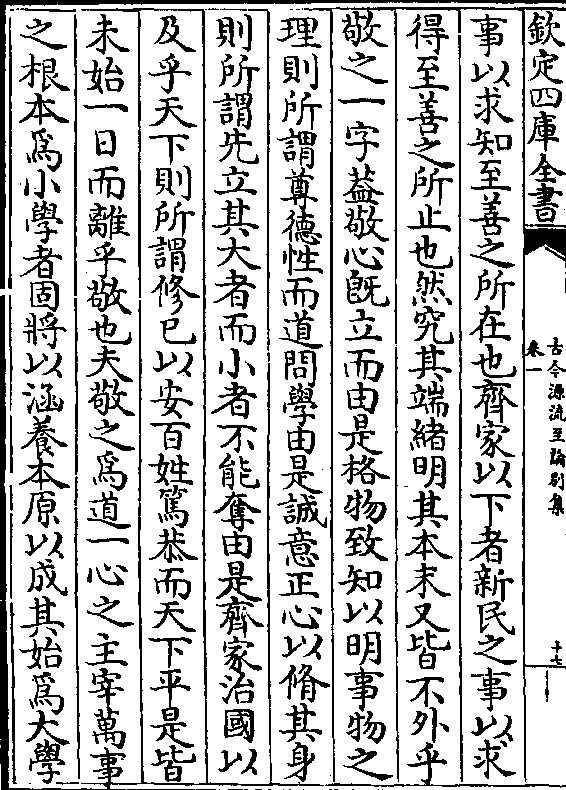 欽定四庫全書
古今源流至論別集
卷一
十七
事以求知至善之所在也齊家以下者新民之事以求
得至善之所止也然究其端緒明其本末又皆不外乎
敬之一字葢敬心旣立而由是格物致知以明事物之
理則所謂尊德性而道問學由是誠意正心以脩其身
則所謂先立其大者而小者不能奪由是齊家治國以
及乎天下則所謂修已以安百姓篤恭而天下平是皆
未始一日而離乎敬也夫敬之為道一心之主宰萬事
之根本為小學者固將以涵養本原以成其始為大學